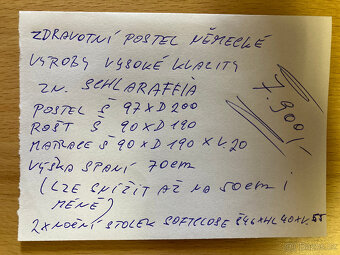 ZDRAVOTNÍ POSTEL NĚMECKÉ
VÝROBY VYSOKÉ KVALITY
ZN. SCHLARAFFIA
7.900,-
POSTEL Š 97 X D 200
ROŠT Š 90 X D 190
MATRACE Š 90 X D 190 X V. 20
VÝŠKA SPANÍ 70cm
(LZE SNÍŽIT AŽ NA 50cm i
MÉNĚ)
2X NOČNÍ STOLEK SOFTCLOSE Š46XHL40XV.55